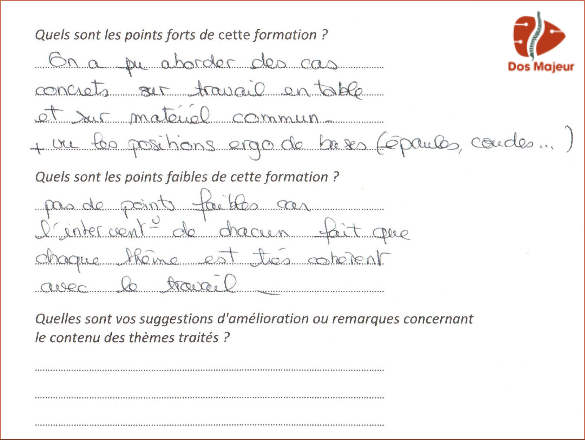 Quels sont les points forts de cette formation ?
Dos Majeur
On a pu aborder des cas
concrets sur travail en table
et sur matériel commun.
+ vu les positions ergo de bases (épaules, coudes... )
Quels sont les points faibles de cette formation ?
pas de points faibles car
l'intervent° de chacun fait que
chaque thème est très cohérent
avec le travail
Quelles sont vos suggestions d'amélioration ou remarques concernant
le contenu des thèmes traités ?